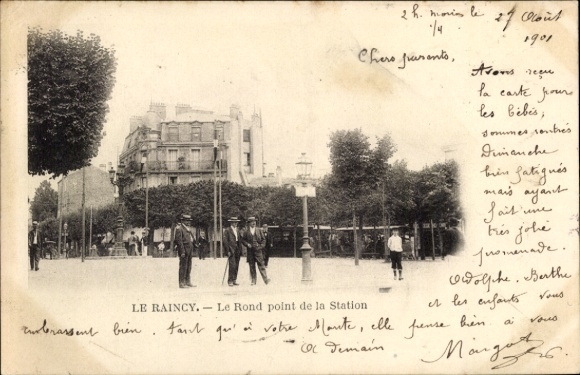 2 h. moins 1/4 le 27 Août
1901
Chers parents,
Avons reçu
la carte pour
les Bébés,
sommes rentrés
Dimanche
bien fatigués
mais ayant
fait une
très jolie
promenade.
Adolphe. Berthe
et les enfants vous
LE RAINCY. — Le Rond point de la Station
embrassent bien. Tant qu'à votre Marte, elle pense bien à vous
A demain
Margot